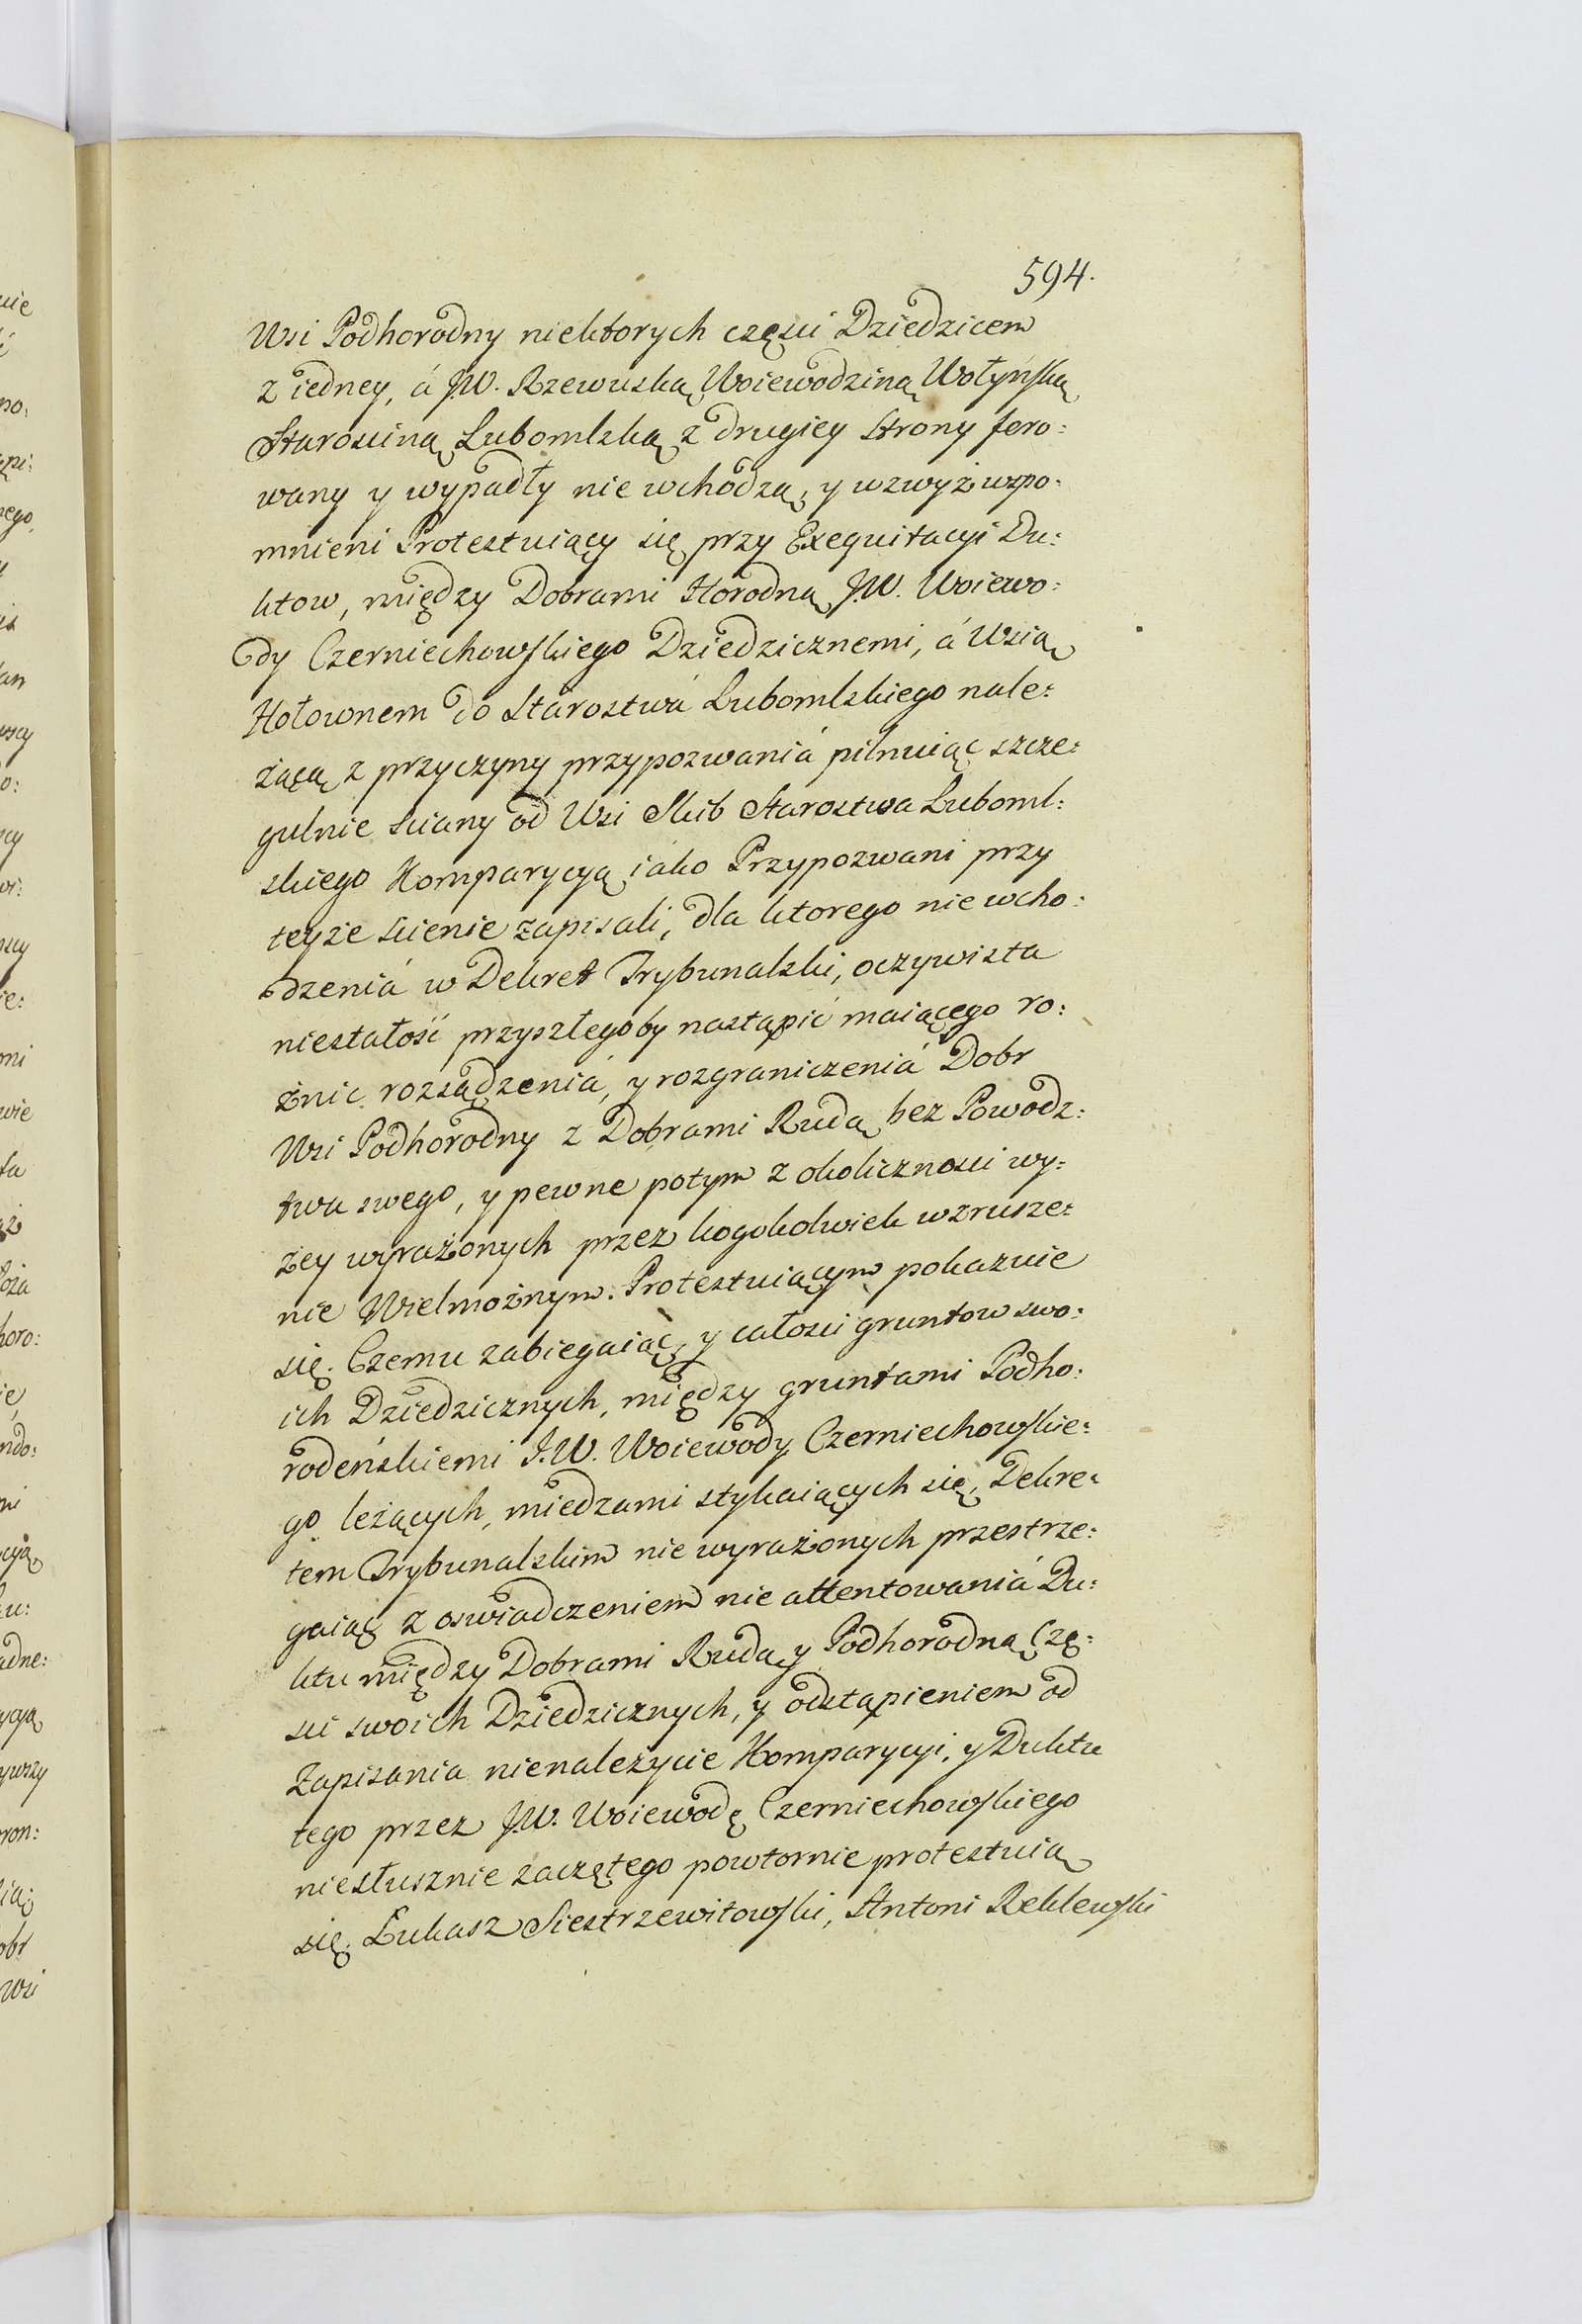 594.
Wsi Podhorodny niektorych częsci Dziedzicem
z iedney, á J.W. Rzewuską Woiewodziną Wołyńską
Starosciną Lubomlską z drugiey Strony fero:
wany y wypadły nie wchodzą, y wzwyż wzpo:
mnieni Protestuiący się przy Exequitacyi Du:
ktow, między Dobrami Horodną J.W. Woiewo:
dy Czerniechowskiego Dziedzicznemi, á Wsią
Hołownem do Starostwá Lubomlskiego nale:
żącą z przyczyny przypozwaniá pilnuiąc szcze:
gulnie sciany od Wsi Skib Starostwa Luboml:
skiego Komparycyą iáko Przypozwani przy
teyże scienie zapisali, dla ktorego nie wcho:
dzeniá w Dekret Trybunalski, oczywista
niestałość przyszłegoby nastąpić maiącego ro:
żnic rozsądzeniá, y rozgraniczeniá Dobr
Wsi Podhorodny z Dobrami Rudą bez Powodz:
twa swego, y pewne potym z okolicznosci wy:
żey wyrażonych przez kogokolwiek wzrusze:
nie Wielmożnym Protestuiącym pokazuie
się. Czemu zabiegaiąc, y całosci gruntow swo:
ich Dziedzicznych, między gruntami Podho:
rodeńskiemi J.W. Woiewody Czerniechowskie:
go leżących, miedzami stykaiących się, Dekre:
tem Trybunalskim nie wyrażonych przestrze:
gaiąc z oswiadczeniem nie attentowaniá Du:
ktu między Dobrami Rudą y Podhorodną Czę:
sci swoich Dziedzicznych, y odstąpieniem od
Zapisania nienależycie Komparycyi, y Duktu
tego przez J.W. Woiewodę Czerniechowskiego
niesłusznie zaczętego powtornie protestuią
się. Łukasz Siestrzewitowski, Antoni Reklewski